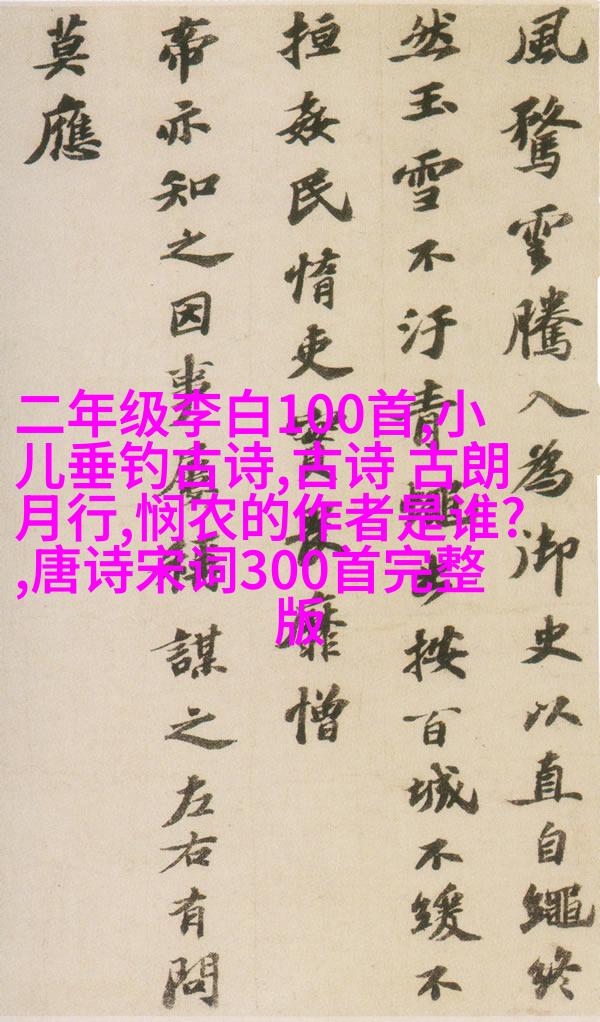 風騖雲騰入為御史以直自繩終
然玉雪不汙青蠅步按百城不緩不
揯姦民惰吏實畏靡憎
帝亦知之因事屢稱謀之左右有問
莫應
二年级李白100首,小
儿垂钓古诗,古诗 古朗
月行,悯农的作者是谁?
,唐诗宋词300首完整
版